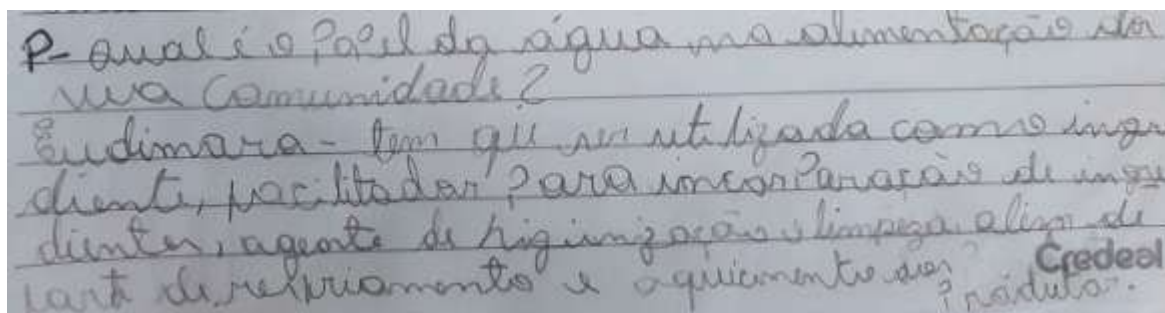 P- qual é o Papel da água na alimentação da
sua Comunidade?
Eudimara - tem que ser utilizada como ingre
diente, facilitador Para incorParação de ingre
dientes, agente de higienização e limpeza, além de
de resfriamento e aquecimento dos Produtos.
Credeal